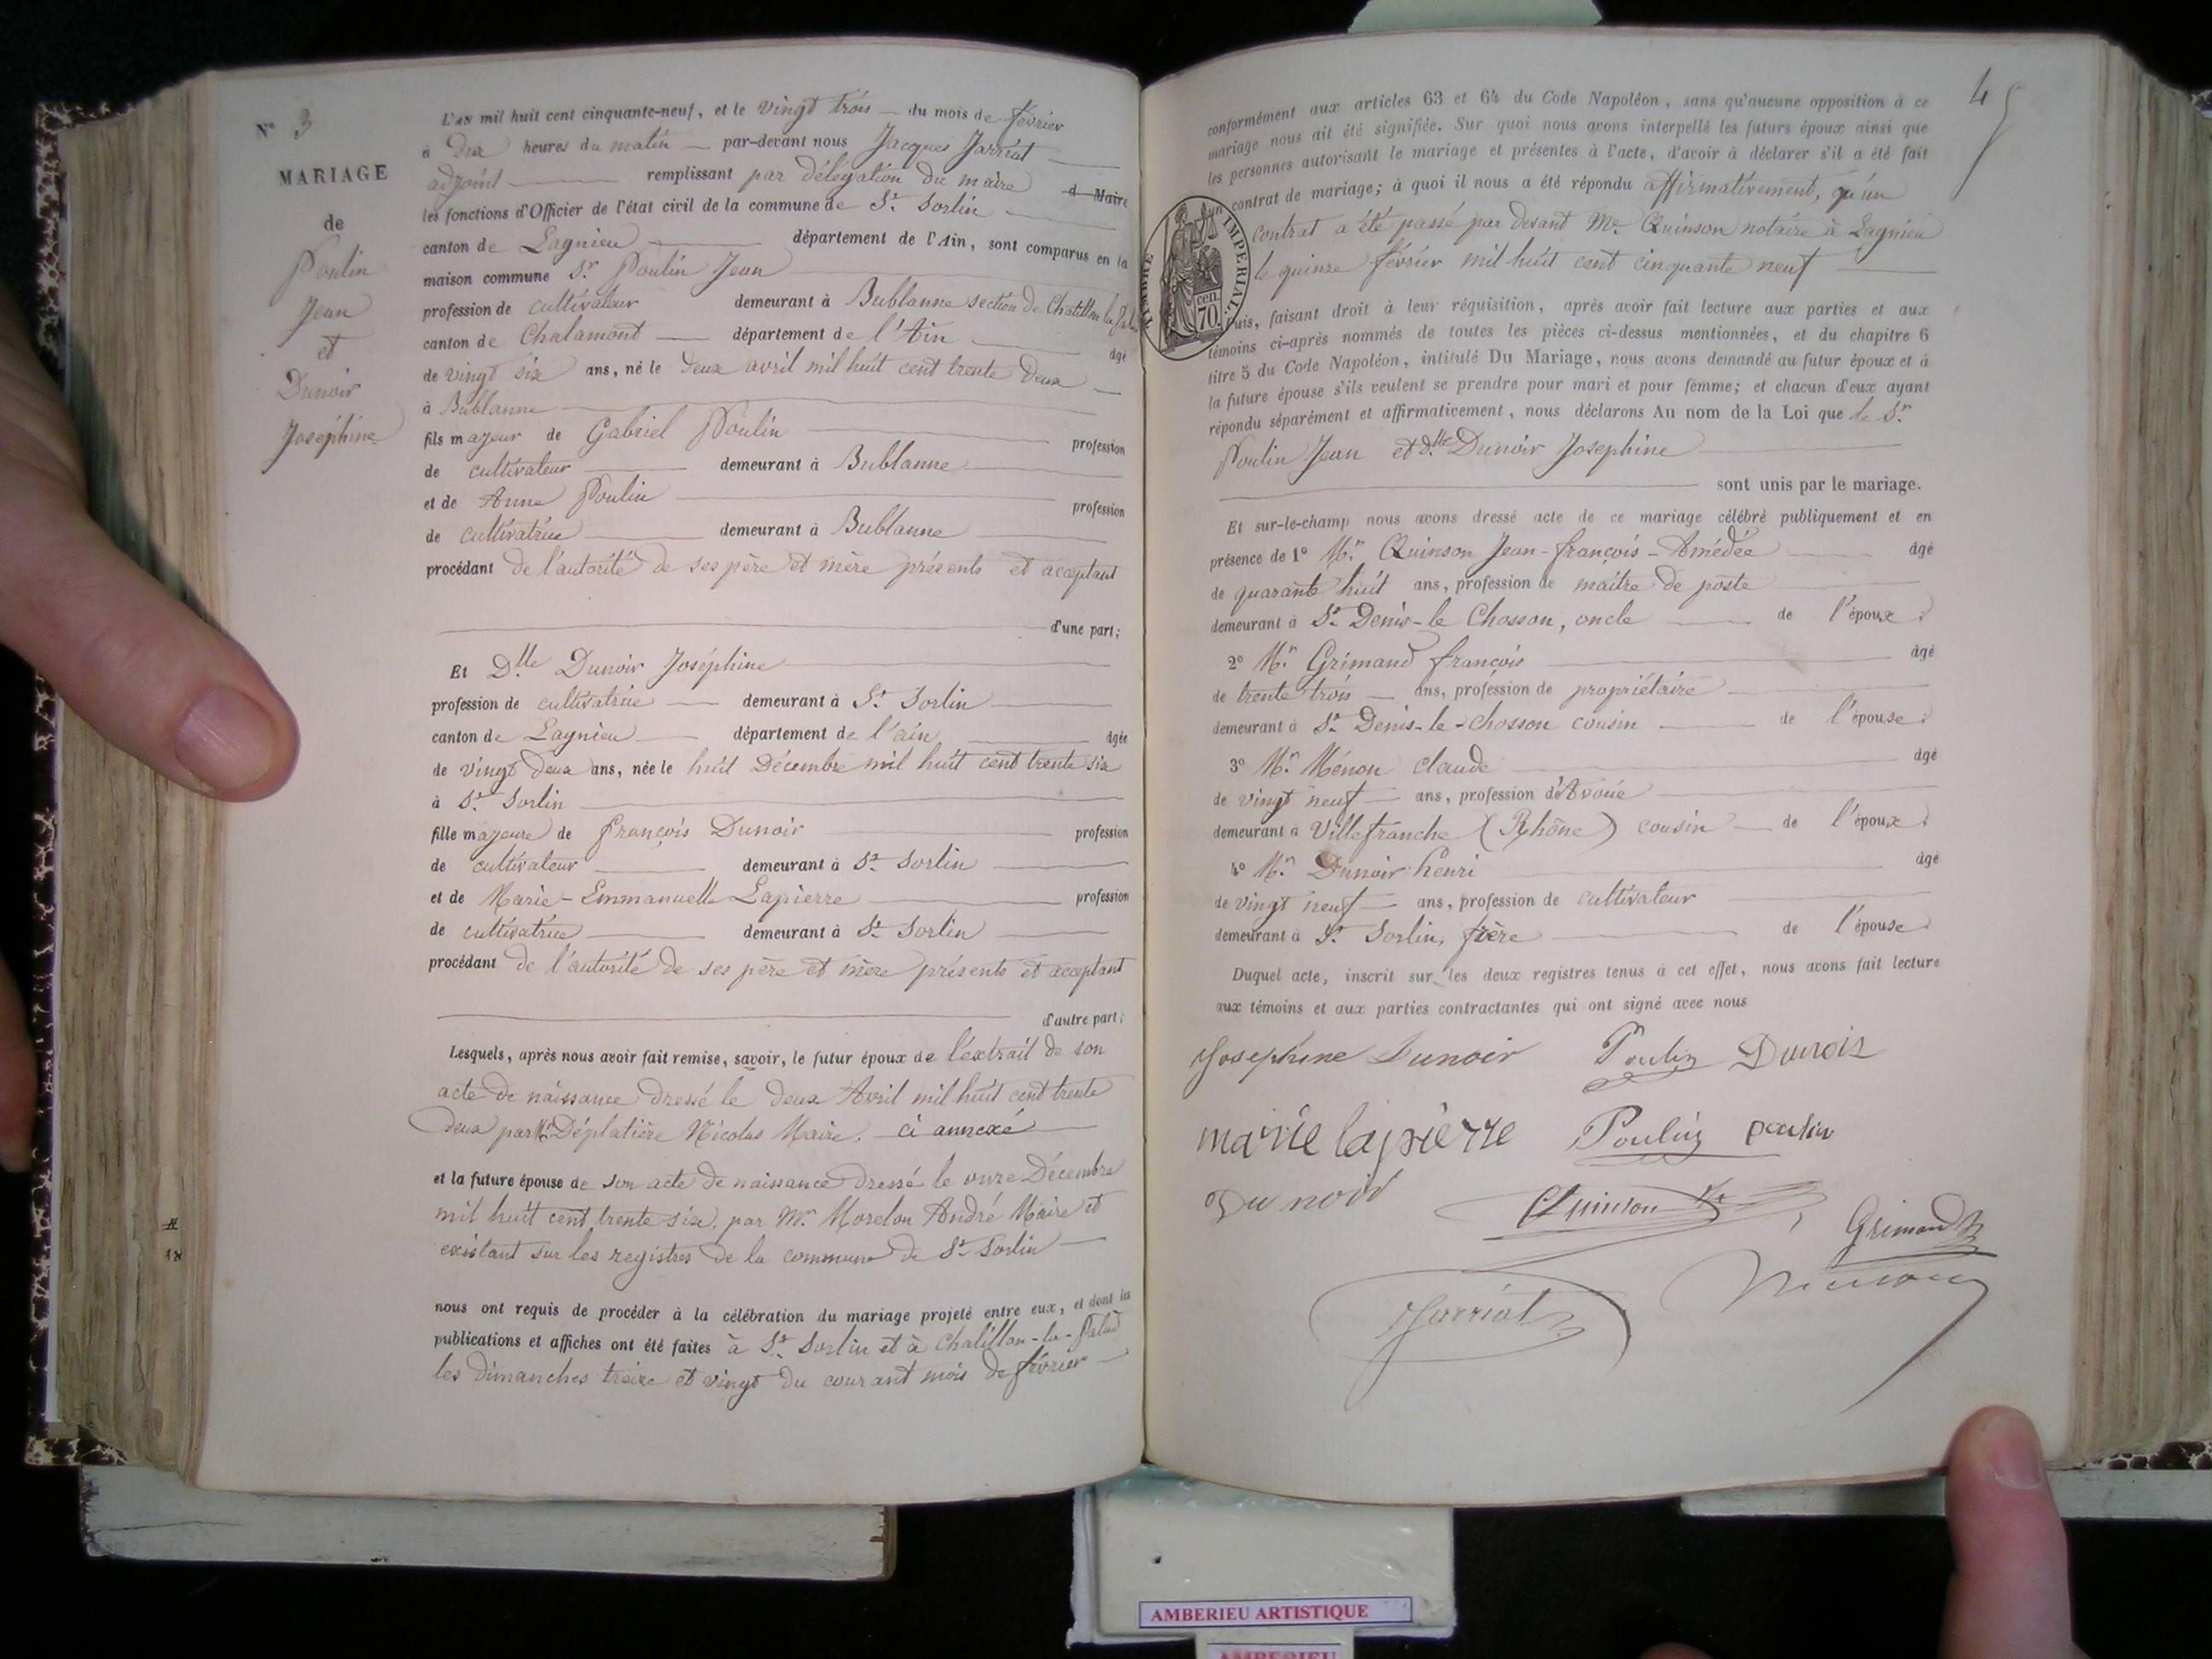 N° 3
MARIAGE
de
Poulin
Jean
et
Dunoir
Joséphine
L'an mil huit cent cinquante-neuf, et le vingt trois du mois de février
à dix heures du matin par-devant nous Jacques Jarriat
adjoint remplissant par délégation du maire d Maire
les fonctions d'Officier de l'état civil de la commune de St Sorlin
canton de Lagnieu département de l'Ain, sont comparus en la
maison commune Sr Poulin Jean
profession de cultivateur demeurant à Bublanne section de Chatillon la Palud
canton de Chalamont département de l'Ain âgé
de vingt six ans, né le deux avril mil huit cent trente deux
à Bublanne
fils majeur de Gabriel Poulin profession
de cultivateur demeurant à Bublanne
et de Anne Poulin profession
de cultivatrice demeurant à Bublanne
procédant de l'autorité de ses père et mère présents et acceptant
d'une part;
Et Dlle Dunoir Joséphine
profession de cultivatrice demeurant à St Sorlin
canton de Lagnieu département de l'ain âgée
de vingt deux ans, née le huit Décembre mil huit cent trente six
à St Sorlin
fille majeure de François Dunoir profession
de cultivateur demeurant à St Sorlin
et de Marie-Emmanuelle Lapierre profession
de cultivatrice demeurant à St Sorlin
procédant de l'autorité de ses père et mère présents et acceptant
d'autre part;
Lesquels, après nous avoir fait remise, savoir, le futur époux de l'extrait de son
acte de naissance dressé le deux Avril mil huit cent trente
deux par Mr Déplatière Nicolas Maire. ci annexé
et la future épouse de son acte de naissance dressé le onze Décembre
mil huit cent trente six, par Mr Morelon André Maire et
existant sur les registres de la commune de St Sorlin
nous ont requis de procéder à la célébration du mariage projeté entre eux, et dont la
publications et affiches ont été faites à St Sorlin et à Chatillon-la-Palud
les dimanches treize et vingt du courant mois de février
45
conformément aux articles 63 et 64 du Code Napoléon, sans qu'aucune opposition à ce
mariage nous ait été signifiée. Sur quoi nous avons interpellé les futurs époux ainsi que
les personnes autorisant le mariage et présentes à l'acte, d'avoir à déclarer s'il a été fait
un contrat de mariage; à quoi il nous a été répondu affirmativement, qu'un
contrat a été passé par devant Me Quinson notaire à Lagnieu
le quinze février mil huit cent cinquante neuf
TIMBRE IMPÉRIAL
cen. 70.
Puis, faisant droit à leur réquisition, après avoir fait lecture aux parties et aux
témoins ci-après nommés de toutes les pièces ci-dessus mentionnées, et du chapitre 6
titre 5 du Code Napoléon, intitulé Du Mariage, nous avons demandé au futur époux et à
la future épouse s'ils veulent se prendre pour mari et pour femme; et chacun d'eux ayant
répondu séparément et affirmativement, nous déclarons Au nom de la Loi que le Sr
Poulin Jean et Dlle Dunoir Josephine
sont unis par le mariage.
Et sur-le-champ nous avons dressé acte de ce mariage célébré publiquement et en
présence de 1° Mr Quinson Jean-françois-Amédée âgé
de quarante huit ans, profession de maître de poste
demeurant à St Denis-le Chosson, oncle de l'époux;
2° Mr Grimand françois âgé
de trente trois ans, profession de propriétaire
demeurant à St Denis-le-chosson cousin de l'épouse;
3° Mr Ménon claude âgé
de vingt neuf ans, profession d'Avoué
demeurant à Villefranche (Rhône) cousin de l'époux;
4° Mr Dunoir henri âgé
de vingt neuf ans, profession de cultivateur
demeurant à St Sorlin, frère de l'épouse
Duquel acte, inscrit sur les deux registres tenus à cet effet, nous avons fait lecture
aux témoins et aux parties contractantes qui ont signé avec nous
Josephine Dunoir Poulin Dunoir
marie lapierre Poulin poulin
Dunoir Quinson Grimand
Jarriat
AMBERIEU ARTISTIQUE
AMBERIEU